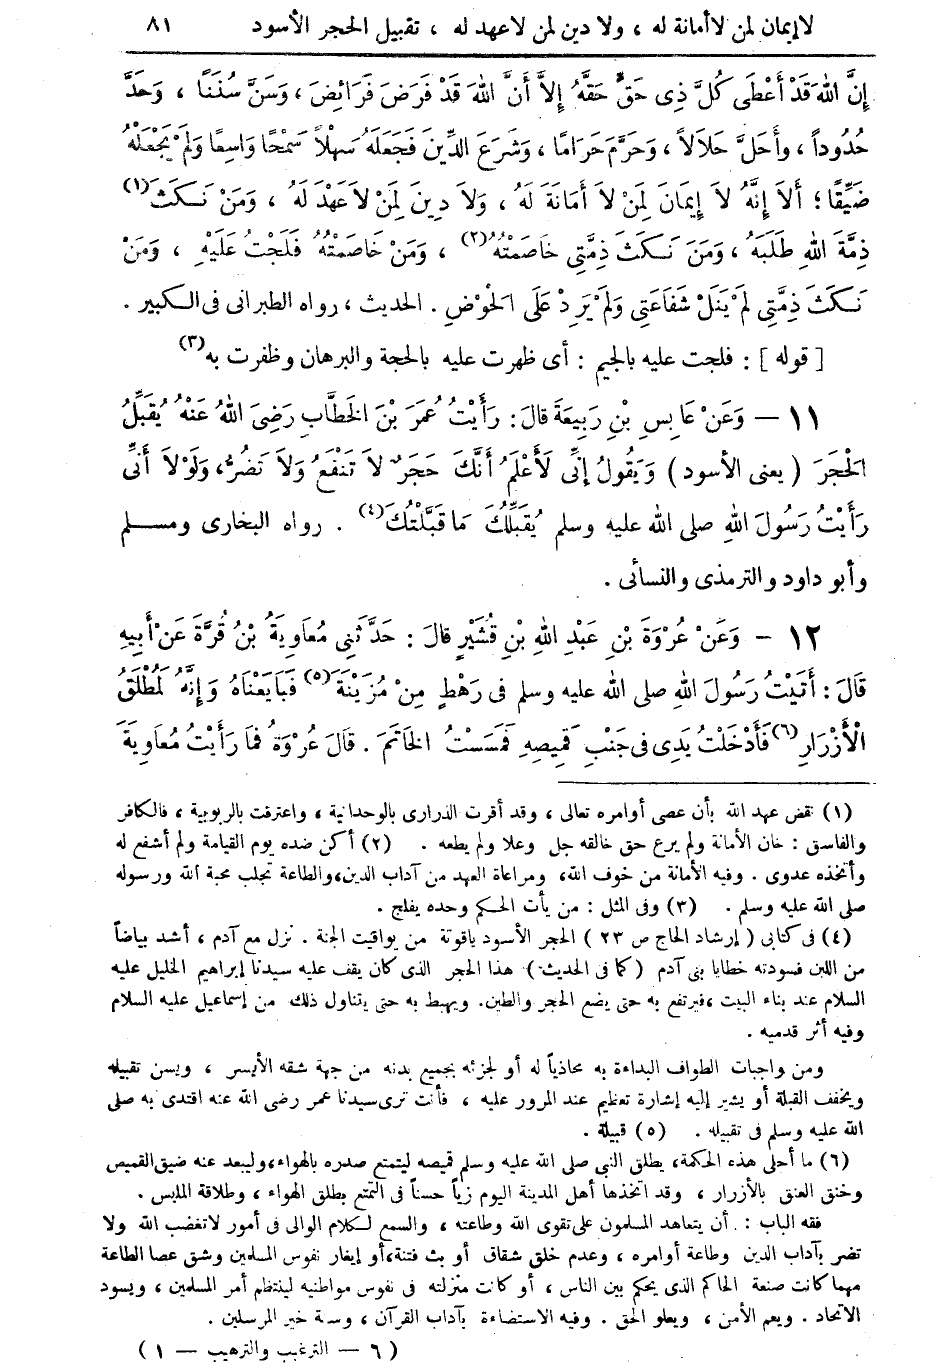 لا إيمان لمن لا أمانة له ، ولا دين لمن لا عهد له ، تقبيل الحجر الأسود ٨١
إِنَّ اللهَ قَدْ أَعْطَى كُلَّ ذِى حَقٍّ حَقَّهُ إِلاَّ أَنَّ اللهَ قَدْ فَرَضَ فَرَائِضَ ، وَسَنَّ سُنَنًا ، وَحَدَّ
حُدُوداً ، وأَحَلَّ حَلاَلاً ، وَحَرَّمَ حَرَامًا ، وَشَرَعَ الدِّينَ فَجَعَلَهُ سَهْلاً سَمْحًا وَاسِعًا وَلَمْ يَجْعَلْهُ
ضَيِّقًا ؛ أَلاَ إِنَّهُ لاَ إِيمَانَ لِمَنْ لاَ أَمَانَةَ لَهُ ، وَلاَ دِينَ لِمَنْ لاَ عَهْدَ لَهُ ، وَمَنْ نَكَثَ (١)
ذِمَّةَ اللهِ طَلَبَهُ ، وَمَنَ نَكَثَ ذِمَّتِى خَاصَمْتُهُ (٢) ، وَمَنْ خَاصَمْتُهُ فَلَجْتُ عَلَيْهِ ، وَمَنْ
نَكَثَ ذِمَّتِى لَمْ يَنَلْ شَفَاعَتِى وَلَمْ يَرِدْ عَلَى الْحَوْضِ . الحديث ، رواه الطبرانى فى الكبير .
[ قوله ] : فلجت عليه بالجيم : أى ظهرت عليه بالحجة والبرهان وظفرت به (٣)
١١ — وَعَنْ عَابِسِ بْنِ رَبِيعَةَ قالَ : رَأَيْتُ عُمَرَ بْنَ الْخَطَّابِ رَضِىَ اللهُ عَنْهُ يُقَبِّلُ
الْحَجَرَ ( يعنى الأسود ) وَيَقُولُ إِنِّى لَأَعْلَمُ أَنَّكَ حَجَرٌ لاَ تَنْفَعُ وَلاَ تَضُرُّ ، وَلَوْلاَ أَنِّى
رَأَيْتُ رَسُولَ اللهِ صلى الله عليه وسلم يُقَبِّلُكَ مَا قَبَّلْتُكَ (٤) . رواه البخارى ومسلم
وأبو داود والترمذى والنسائى .
١٢ — وَعَنْ عُرْوَةَ بْنِ عَبْدِ اللهِ بْنِ قُشَيْرٍ قالَ : حَدَّثَنِى مُعَاوِيَةُ بْنُ قُرَّةَ عَنْ أَبِيهِ
قَالَ : أَتَيْتُ رَسُولَ اللهِ صلى الله عليه وسلم فى رَهْطٍ مِنْ مُزَيْنَةَ (٥) فَبَايَعْنَاهُ وَإِنَّهُ لَمُطْلَقُ
الْأَزْرَارِ (٦) فَأَدْخَلْتُ يَدِى فى جَنْبِ قَمِيصِهِ فَمَسَسْتُ الْخَاتَمَ . قَالَ عُرْوَةُ فَمَا رَأَيْتُ مُعَاوِيَةَ
(١) نقض عهد الله بأن عصى أوامره تعالى ، وقد أقرت الذرارى بالوحدانية ، واعترفت بالربوبية ، فالكافر
والفاسق : خان الأمانة ولم يرع حق خالقه جل وعلا ولم يطعه . (٢) أكن ضده يوم القيامة ولم أشفع له
وأتخذه عدوى . وفيه الأمانة من خوف الله ، ومراعاة العهد من آداب الدين ، والطاعة تجلب محبة الله ورسوله
صلى الله عليه وسلم . (٣) وفى المثل : من يأت الحكم وحده يفلج .
(٤) فى كتابى ( إرشاد الحاج ص ٢٣ ) الحجر الأسود ياقوتة من يواقيت الجنة . نزل مع آدم ، أشد بياضاً
من اللبن فسودته خطايا بنى آدم ( كما فى الحديث ) هذا الحجر الذى كان يقف عليه سيدنا إبراهيم الخليل عليه
السلام عند بناء البيت ، فيرتفع به حتى يضع الحجر والطين . ويهبط به حتى يتناول ذلك من إسماعيل عليه السلام
وفيه أثر قدميه .
ومن واجبات الطواف البداءة به محاذياً له أو لجزئه بجميع بدنه من جهة شقه الأيسر ، ويسن تقبيله
ويخفف القبلة أو يشير إليه إشارة تعظيم عند المرور عليه ، فأنت ترى سيدنا عمر رضى الله عنه اقتدى به صلى
الله عليه وسلم فى تقبيله . (٥) قبيلة .
(٦) ما أحلى هذه الحكمة ، يطلق النبى صلى الله عليه وسلم قميصه ليتمتع صدره بالهواء ، وليبعد عنه ضيق القميص
وخنق العنق بالأزرار ، وقد اتخذها أهل المدينة اليوم زياً حسناً فى التمتع بطلق الهواء ، وطلاقة الملابس .
فقه الباب : أن يتعاهد المسلمون على تقوى الله وطاعته ، والسمع لكلام الوالى فى أمور لا تغضب الله ولا
تضر بآداب الدين وطاعة أوامره ، وعدم خلق شقاق أو بث فتنة ، أو إيغار نفوس المسلمين وشق عصا الطاعة
مهما كانت صنعة الحاكم الذى يحكم بين الناس ، أو كانت منزلته فى نفوس مواطنيه لينتظم أمر المسلمين ، ويسود
الاتحاد . ويعم الأمن ، ويعلو الحق . وفيه الاستضاءة بآداب القرآن ، وسنة خير المرسلين .
( ٦ — الترغيب والترهيب — ١ )